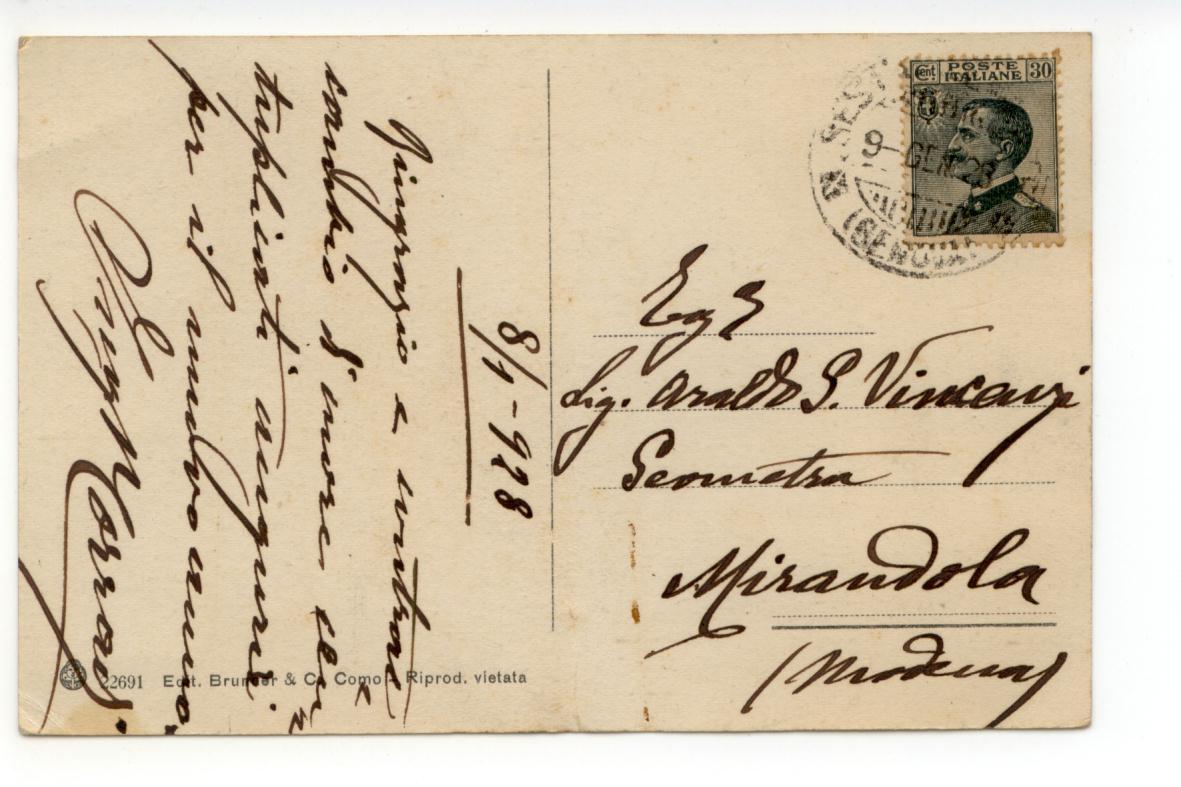 8/1-928
Ringrazio e contrac
cambio di cuore cen
triplicati auguri
per il nuovo anno.
Cent. POSTE ITALIANE 30
9-GEN 28
(GENOVA)
Egr
Sig. Araldo S. Vincenzi
Geometra
Mirandola
(Modena)
22691 Edit. Brunner & C. Como - Riprod. vietata